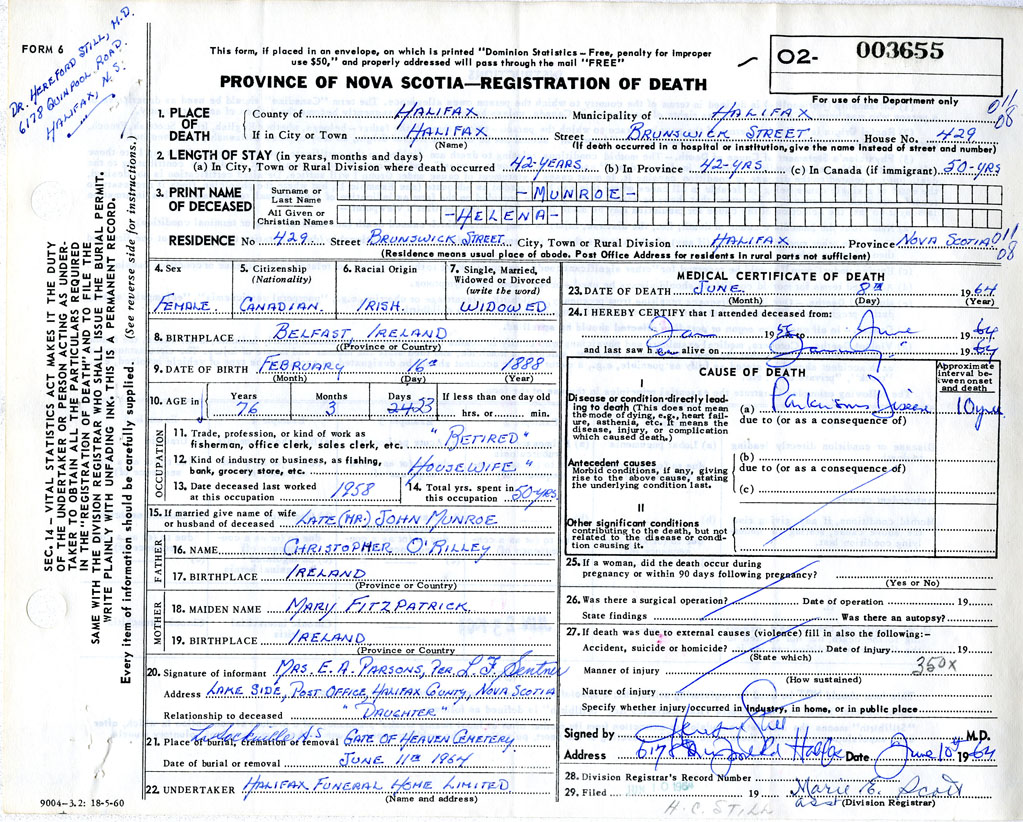 FORM 6
DR. HEREFORD STILL, M.D.
6178 QUINPOOL ROAD.
HALIFAX, N.S.
This form, if placed in an envelope, on which is printed "Dominion Statistics – Free, penalty for improper
use $50," and properly addressed will pass through the mail "FREE"
PROVINCE OF NOVA SCOTIA—REGISTRATION OF DEATH
02- 003655
For use of the Department only
011
08
1. PLACE OF DEATH
County of HALIFAX Municipality of HALIFAX
If in City or Town HALIFAX Street BRUNSWICK STREET. House No. 429
(Name) (If death occurred in a hospital or institution, give the name instead of street and number)
2. LENGTH OF STAY (in years, months and days)
(a) In City, Town or Rural Division where death occurred 42-YEARS (b) In Province 42-YRS. (c) In Canada (if immigrant) 50-YRS
3. PRINT NAME OF DECEASED
Surname or Last Name -MUNROE-
All Given or Christian Names -HELENA-
RESIDENCE No 429 Street BRUNSWICK STREET City, Town or Rural Division HALIFAX Province NOVA SCOTIA 011
08
(Residence means usual place of abode. Post Office Address for residents in rural parts not sufficient)
4. Sex FEMALE.
5. Citizenship (Nationality) CANADIAN.
6. Racial Origin IRISH.
7. Single, Married, Widowed or Divorced (write the word) WIDOWED
8. BIRTHPLACE BELFAST, IRELAND
(Province or Country)
9. DATE OF BIRTH FEBRUARY 16th 1888
(Month) (Day) (Year)
10. AGE in Years 76 Months 3 Days 24 23 If less than one day old hrs. or min.
OCCUPATION
11. Trade, profession, or kind of work as fisherman, office clerk, sales clerk, etc. "RETIRED"
12. Kind of industry or business, as fishing, bank, grocery store, etc. HOUSEWIFE"
13. Date deceased last worked at this occupation 1958
14. Total yrs. spent in this occupation 50-YRS
15. If married give name of wife or husband of deceased LATE (MR.) JOHN MUNROE
FATHER
16. NAME CHRISTOPHER O'RILLEY
17. BIRTHPLACE IRELAND
(Province or Country)
MOTHER
18. MAIDEN NAME MARY FITZPATRICK
19. BIRTHPLACE IRELAND
(Province or Country)
20. Signature of informant MRS. E. A. PARSONS, PER L. F. Sentner
Address LAKE SIDE, POST OFFICE, HALIFAX COUNTY, NOVA SCOTIA
Relationship to deceased "DAUGHTER"
21. Place of burial, cremation or removal GATE OF HEAVEN CEMETERY
N.S
Date of burial or removal JUNE 11th 1964
22. UNDERTAKER HALIFAX FUNERAL HOME LIMITED
(Name and address)
MEDICAL CERTIFICATE OF DEATH
23. DATE OF DEATH JUNE 8th 1964
(Month) (Day) (Year)
24. I HEREBY CERTIFY that I attended deceased from:
Jan 1956 June 1964
and last saw her alive on 1964
CAUSE OF DEATH
Approximate interval between onset and death
I
Disease or condition directly leading to death (This does not mean the mode of dying, e.g., heart failure, asthenia, etc. It means the disease, injury, or complication which caused death.)
(a) Parkinsons Disease 10 years
due to (or as a consequence of)
Antecedent causes
Morbid conditions, if any, giving rise to the above cause, stating the underlying condition last.
(b)
due to (or as a consequence of)
(c)
II
Other significant conditions contributing to the death, but not related to the disease or condition causing it.
25. If a woman, did the death occur during pregnancy or within 90 days following pregnancy?
(Yes or No)
26. Was there a surgical operation? Date of operation 19
State findings Was there an autopsy?
27. If death was due to external causes (violence) fill in also the following:–
Accident, suicide or homicide? Date of injury 19
(State which)
350x
Manner of injury
(How sustained)
Nature of injury
Specify whether injury occurred in industry, in home, or in public place
Signed by Hereford Still M.D.
Address 6178 Quinpool Rd Halifax Date June 10th 1964
28. Division Registrar's Record Number
29. Filed 19 Marie E. Scott
asst (Division Registrar)
H.C. STILL
9004–3.2: 18-5-60
SEC. 14 – VITAL STATISTICS ACT MAKES IT THE DUTY
OF THE UNDERTAKER OR PERSON ACTING AS UNDER-
TAKER TO OBTAIN ALL THE PARTICULARS REQUIRED
IN THE "REGISTRATION OF DEATH" AND TO FILE THE
SAME WITH THE DIVISION REGISTRAR WHO SHALL ISSUE THE BURIAL PERMIT.
WRITE PLAINLY WITH UNFADING INK. THIS IS A PERMANENT RECORD.
Every item of information should be carefully supplied. (See reverse side for instructions.)